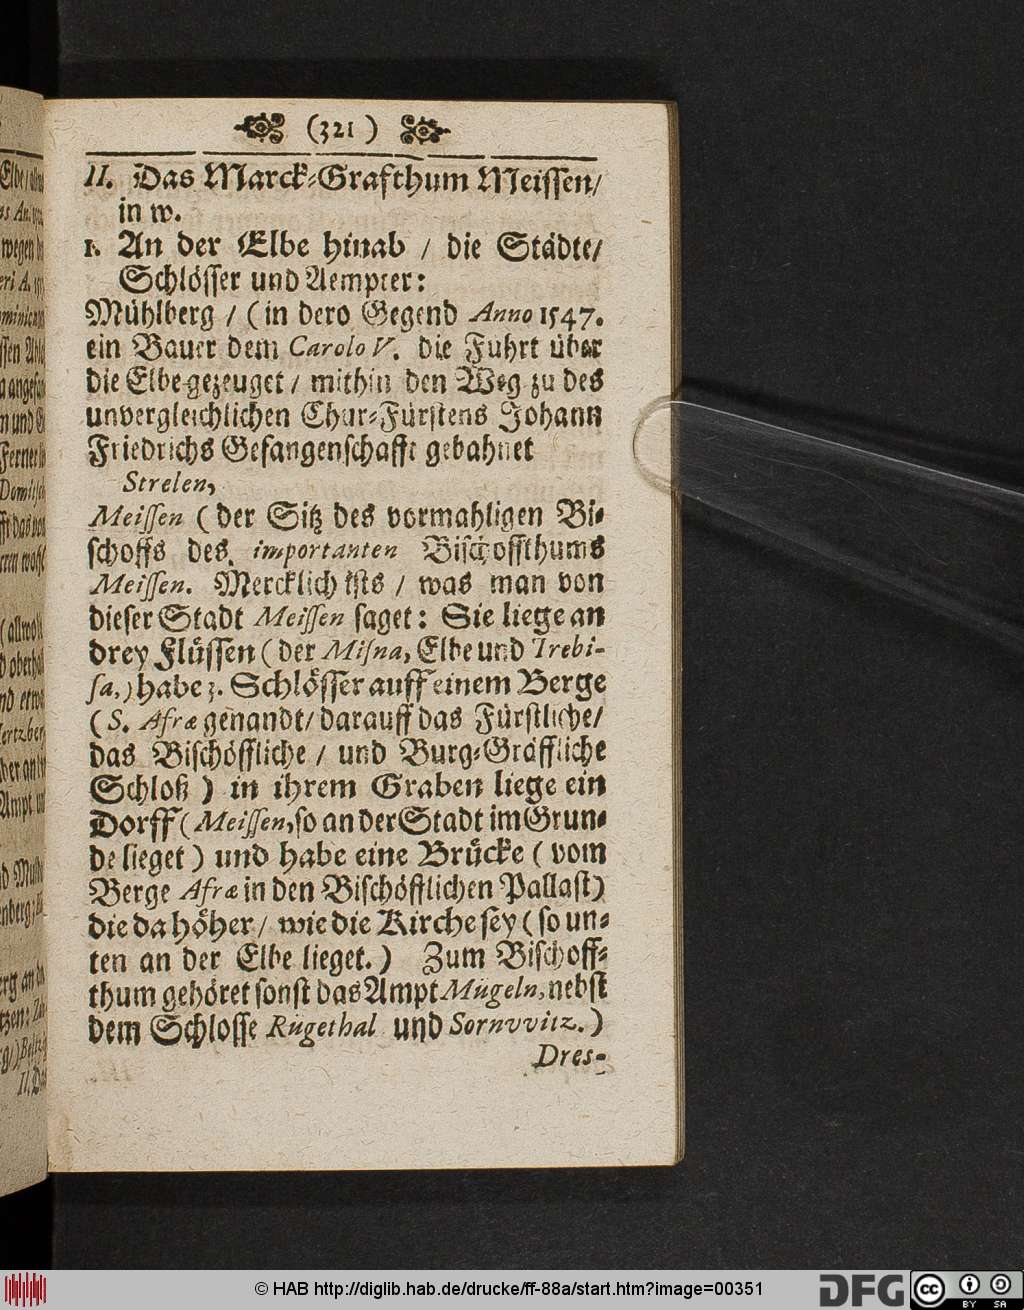 (321)
II. Das Marck-Grafthum Meissen/
in w.
1. An der Elbe hinab / die Städte/
Schlösser und Aempter:
Mühlberg / (in dero Gegend Anno 1547.
ein Bauer dem Carolo V. die Fuhrt über
die Elbe gezeuget / mithin den Weg zu des
unvergleichlichen Chur-Fürstens Johann
Friedrichs Gefangenschafft gebahnet
Strelen,
Meissen (der Sitz des vormahligen Bi-
schoffs des importanten Bischoffthums
Meissen. Mercklich ists / was man von
dieser Stadt Meissen saget: Sie liege an
drey Flüssen (der Misna, Elbe und Trebi-
sa,) habe 3. Schlösser auff einem Berge
(S. Afræ genandt/ darauff das Fürstliche/
das Bischöffliche / und Burg-Gräffliche
Schloß) in ihrem Graben liege ein
Dorff (Meissen, so an der Stadt im Grun-
de lieget) und habe eine Brücke (vom
Berge Afræ in den Bischöfflichen Pallast)
die da höher / wie die Kirche sey (so un-
ten an der Elbe lieget.) Zum Bischoff-
thum gehöret sonst das Ampt Mugeln, nebst
dem Schlosse Rugethal und Sornvvitz.)
Dres-
© HAB http://diglib.hab.de/drucke/ff-88a/start.htm?image=00351
DFG
cc BY SA